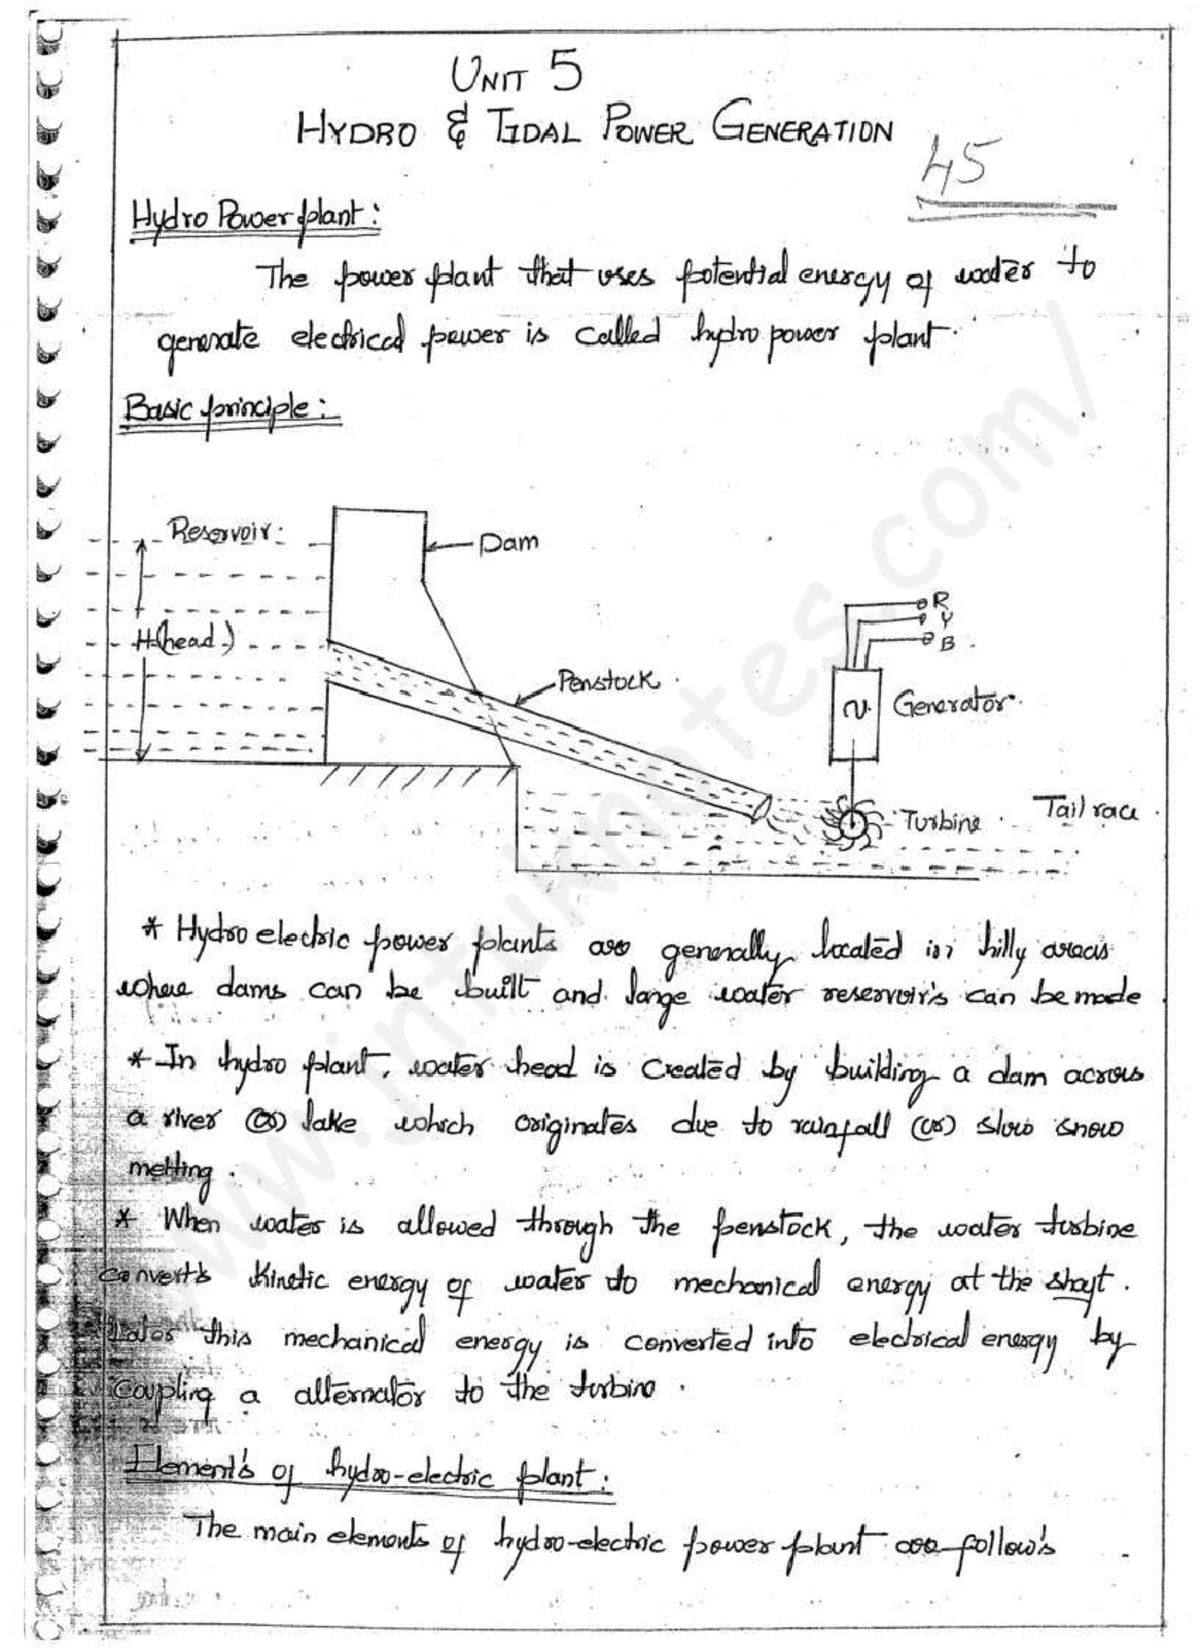 UNIT 5
HYDRO & TIDAL POWER GENERATION
45
Hydro Power plant:
The power plant that uses potential energy of water to
generate electrical power is called hydro power plant.
Basic principle:
Reservoir.
Dam
H(head)
R
Y
B.
Penstock.
Generator.
Turbine.
Tail race.
* Hydro electric power plants are generally located in hilly areas
where dams can be built and large water reservoir's can be made
* In hydro plant, water head is created by building a dam across
a river (or) lake which originates due to rainfall (or) slow snow
melting.
* When water is allowed through the penstock, the water turbine
convert's kinetic energy of water to mechanical energy at the shaft.
Later this mechanical energy is converted into electrical energy by
coupling a alternator to the turbine.
Element's of hydro-electric plant:
The main elements of hydro-electric power plant are follow's
www.jntuknotes.com/